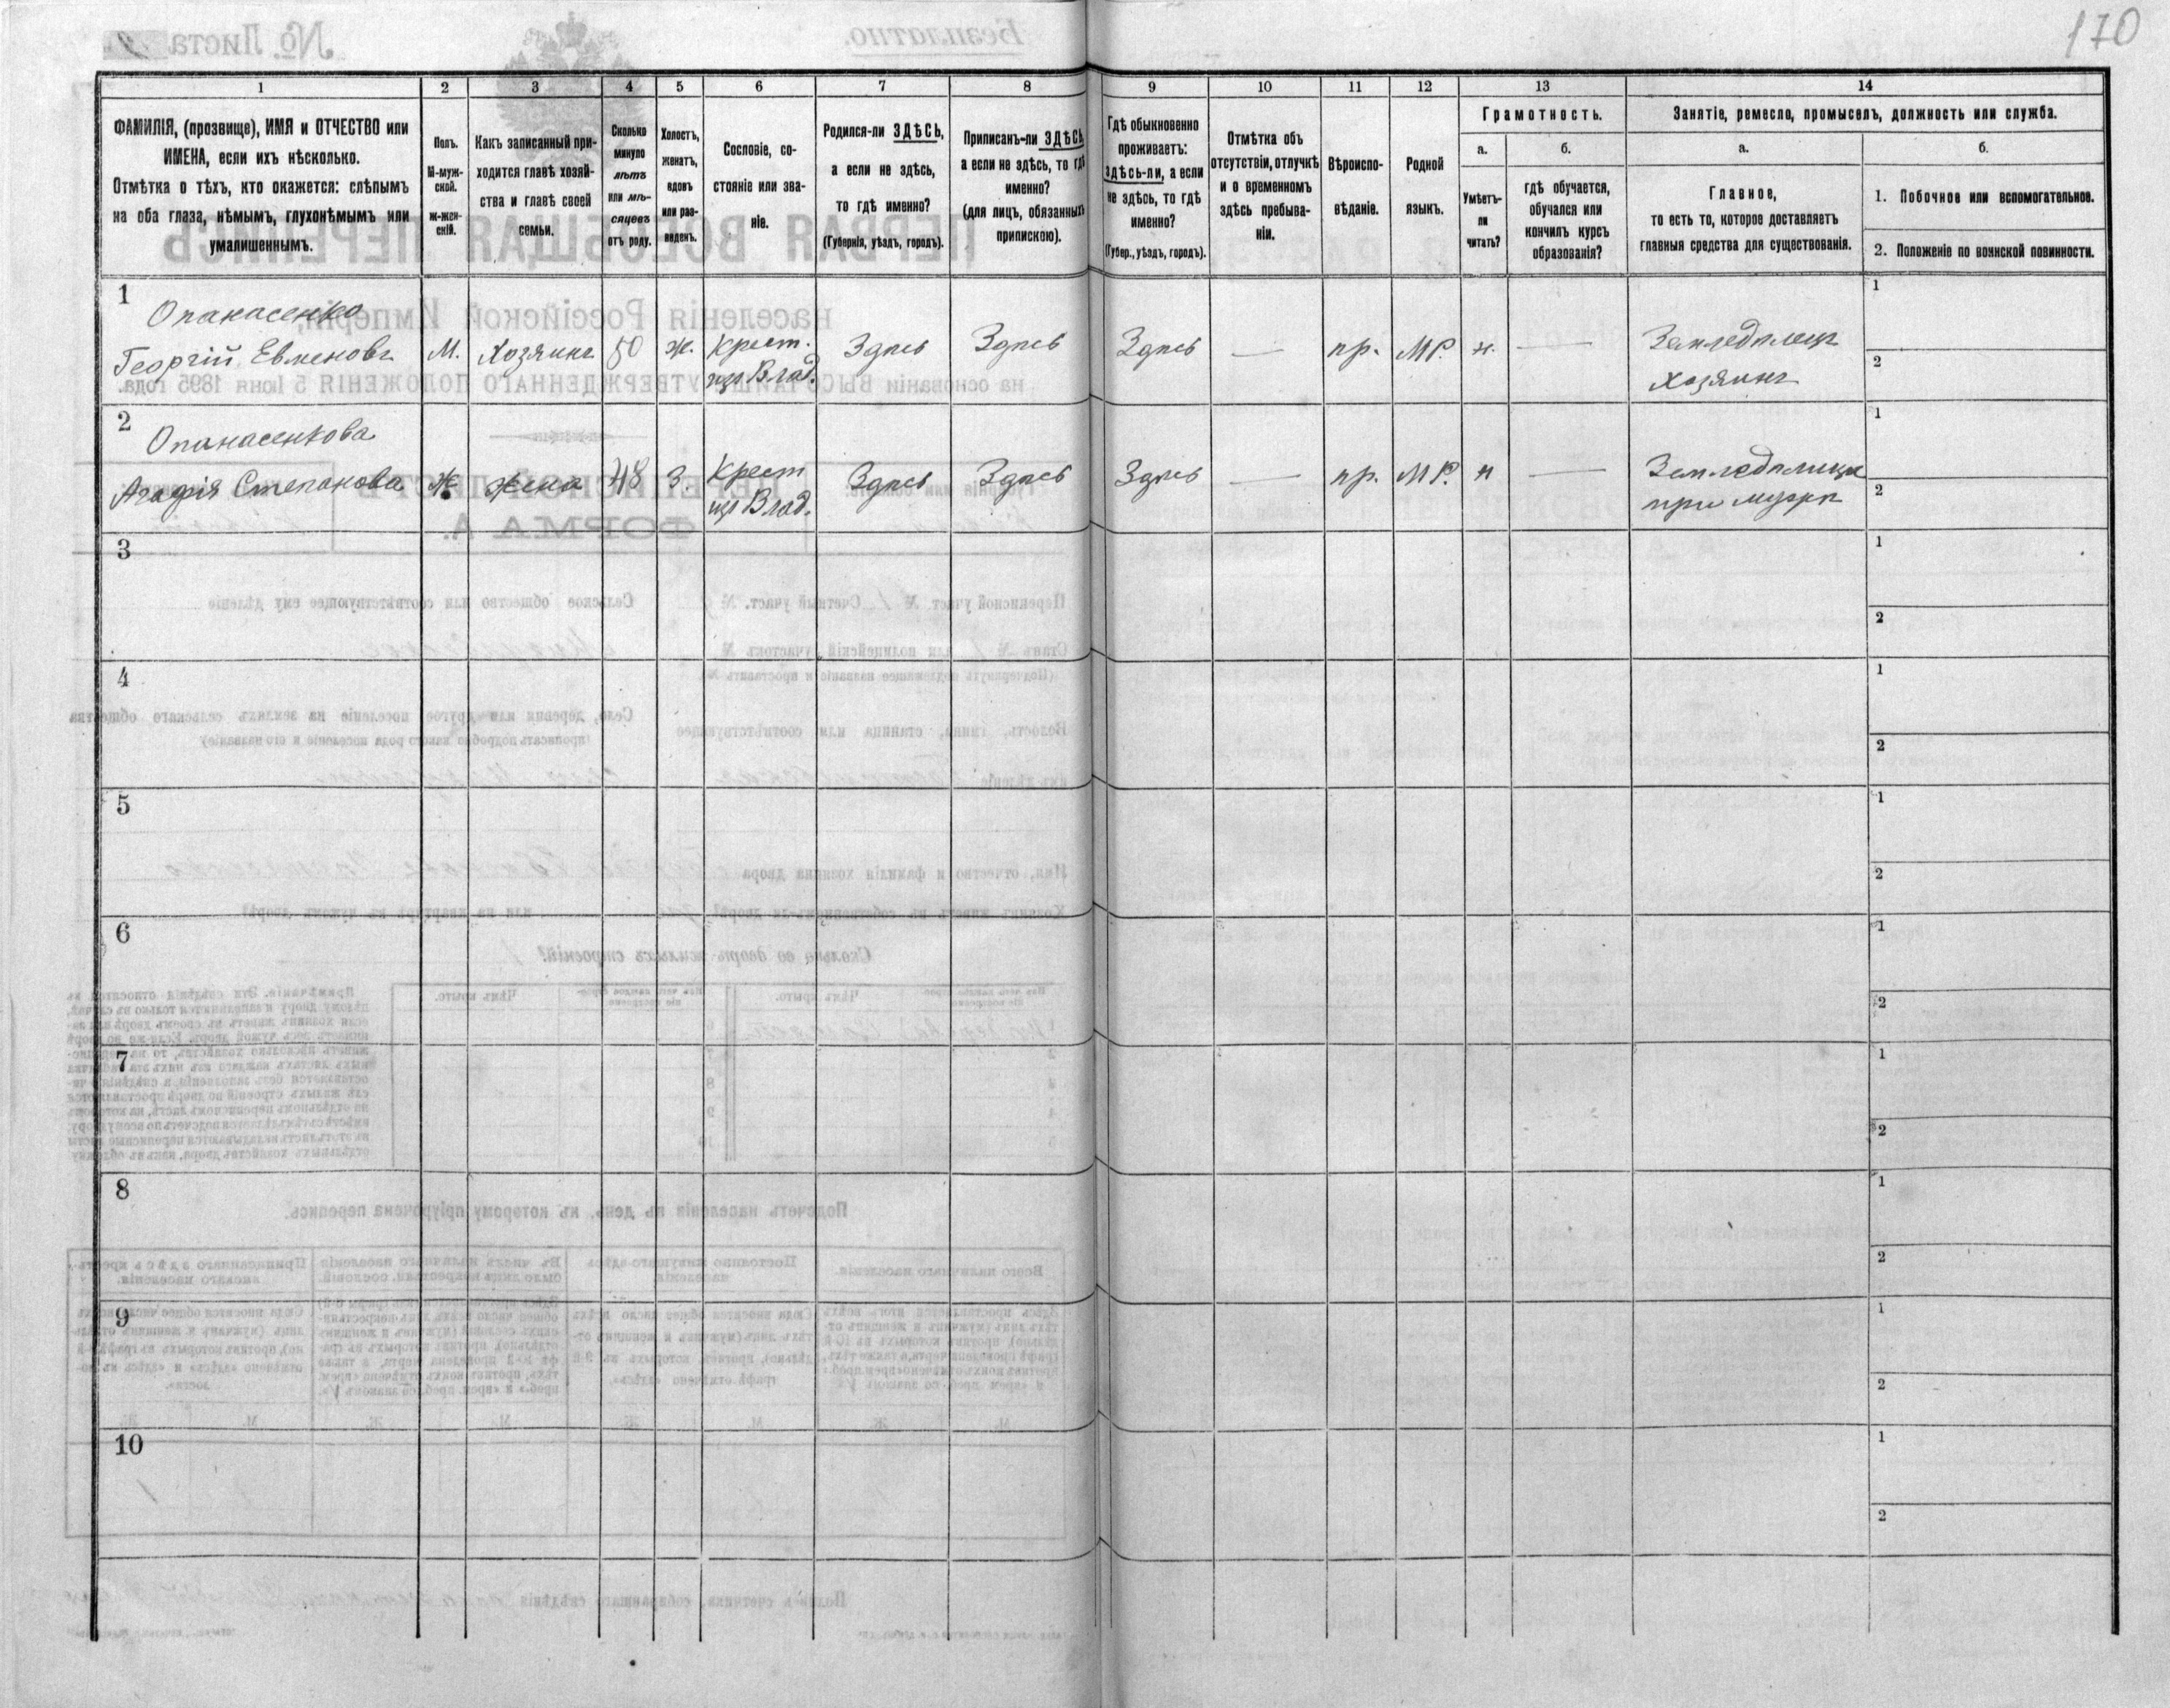 170
1 2 3 4 5 6 7 8 9 10 11 12 13 14
ФАМИЛІЯ, (прозвище), ИМЯ и ОТЧЕСТВО или
ИМЕНА, если ихъ нѣсколько.
Отмѣтка о тѣхъ, кто окажется: слѣпымъ
на оба глаза, нѣмымъ, глухонѣмымъ или
умалишеннымъ.
Полъ.
М-муж-
ской.
Ж-жен-
скій.
Какъ записанный при-
ходится главѣ хозяй-
ства и главѣ своей
семьи.
Сколько
минуло
лѣтъ
или мѣ-
сяцевъ
отъ роду.
Холостъ,
женатъ,
вдовъ
или раз-
веденъ.
Сословіе, со-
стояніе или зва-
ніе.
Родился-ли ЗДѢСЬ,
а если не здѣсь,
то гдѣ именно?
(Губернія, уѣздъ, городъ).
Приписанъ-ли ЗДѢСЬ,
а если не здѣсь, то гдѣ
именно?
(для лицъ, обязанныхъ
припискою).
Гдѣ обыкновенно
проживаетъ:
здѣсь-ли, а если
не здѣсь, то гдѣ
именно?
(Губер., уѣздъ, городъ).
Отмѣтка объ
отсутствіи, отлучкѣ
и о временномъ
здѣсь пребыва-
ніи.
Вѣроиспо-
вѣданіе.
Родной
языкъ.
Грамотность.
а.
Умѣетъ-
ли
читать?
б.
гдѣ обучается,
обучался или
кончилъ курсъ
образованія?
Занятіе, ремесло, промыселъ, должность или служба.
а.
Главное,
то есть то, которое доставляетъ
главныя средства для существованія.
б.
1. Побочное или вспомогательное.
2. Положеніе по воинской повинности.
1
Опанасенко
Георгій Евменовъ М. Хозяинъ 50 Ж. Крест. Здѣсь Здѣсь Здѣсь — пр. МР. н. — Земледѣлецъ 1
изъ Влад. хозяинъ 2
2
Опанасенкова
Агафія Степанова Ж жена 48 З. Крест Здѣсь Здѣсь Здѣсь — пр. МР. н — Земледѣлица 1
изъ Влад. при мужѣ 2
3 1
2
4 1
2
5 1
2
6 1
2
7 1
2
8 1
2
9 1
2
10 1
2